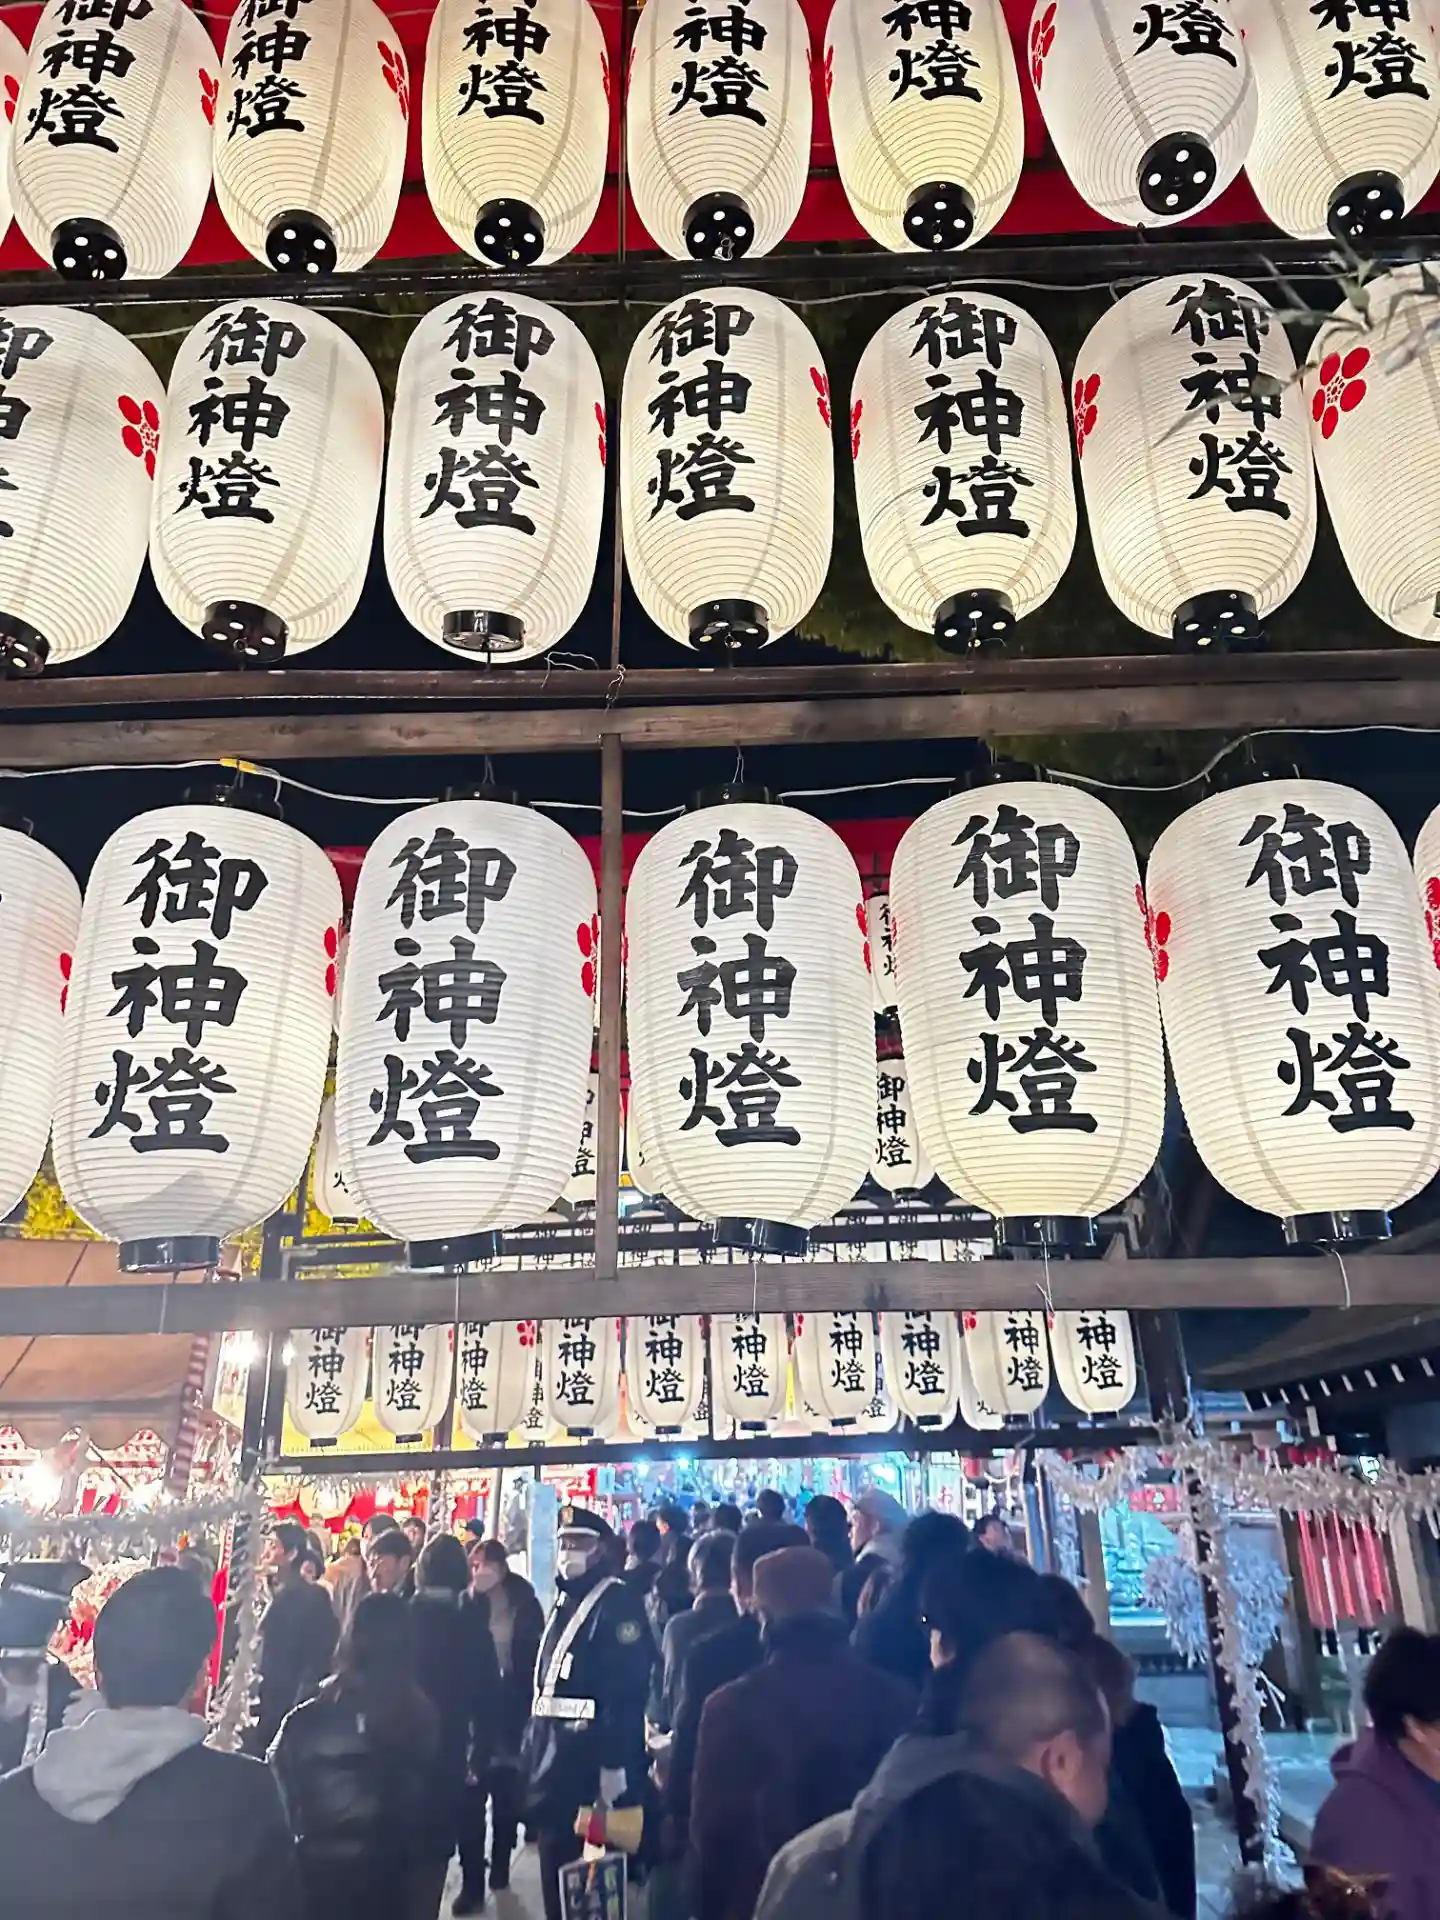 御神燈
御神燈
神燈
神燈
神燈
燈
神燈
御神燈
御神燈
御神燈
御神燈
御神燈
御神燈
御神燈
御神燈
御神燈
御神燈
御神燈
神燈
神燈
神燈
神燈
神燈
神燈
神燈
神燈
神燈
神燈